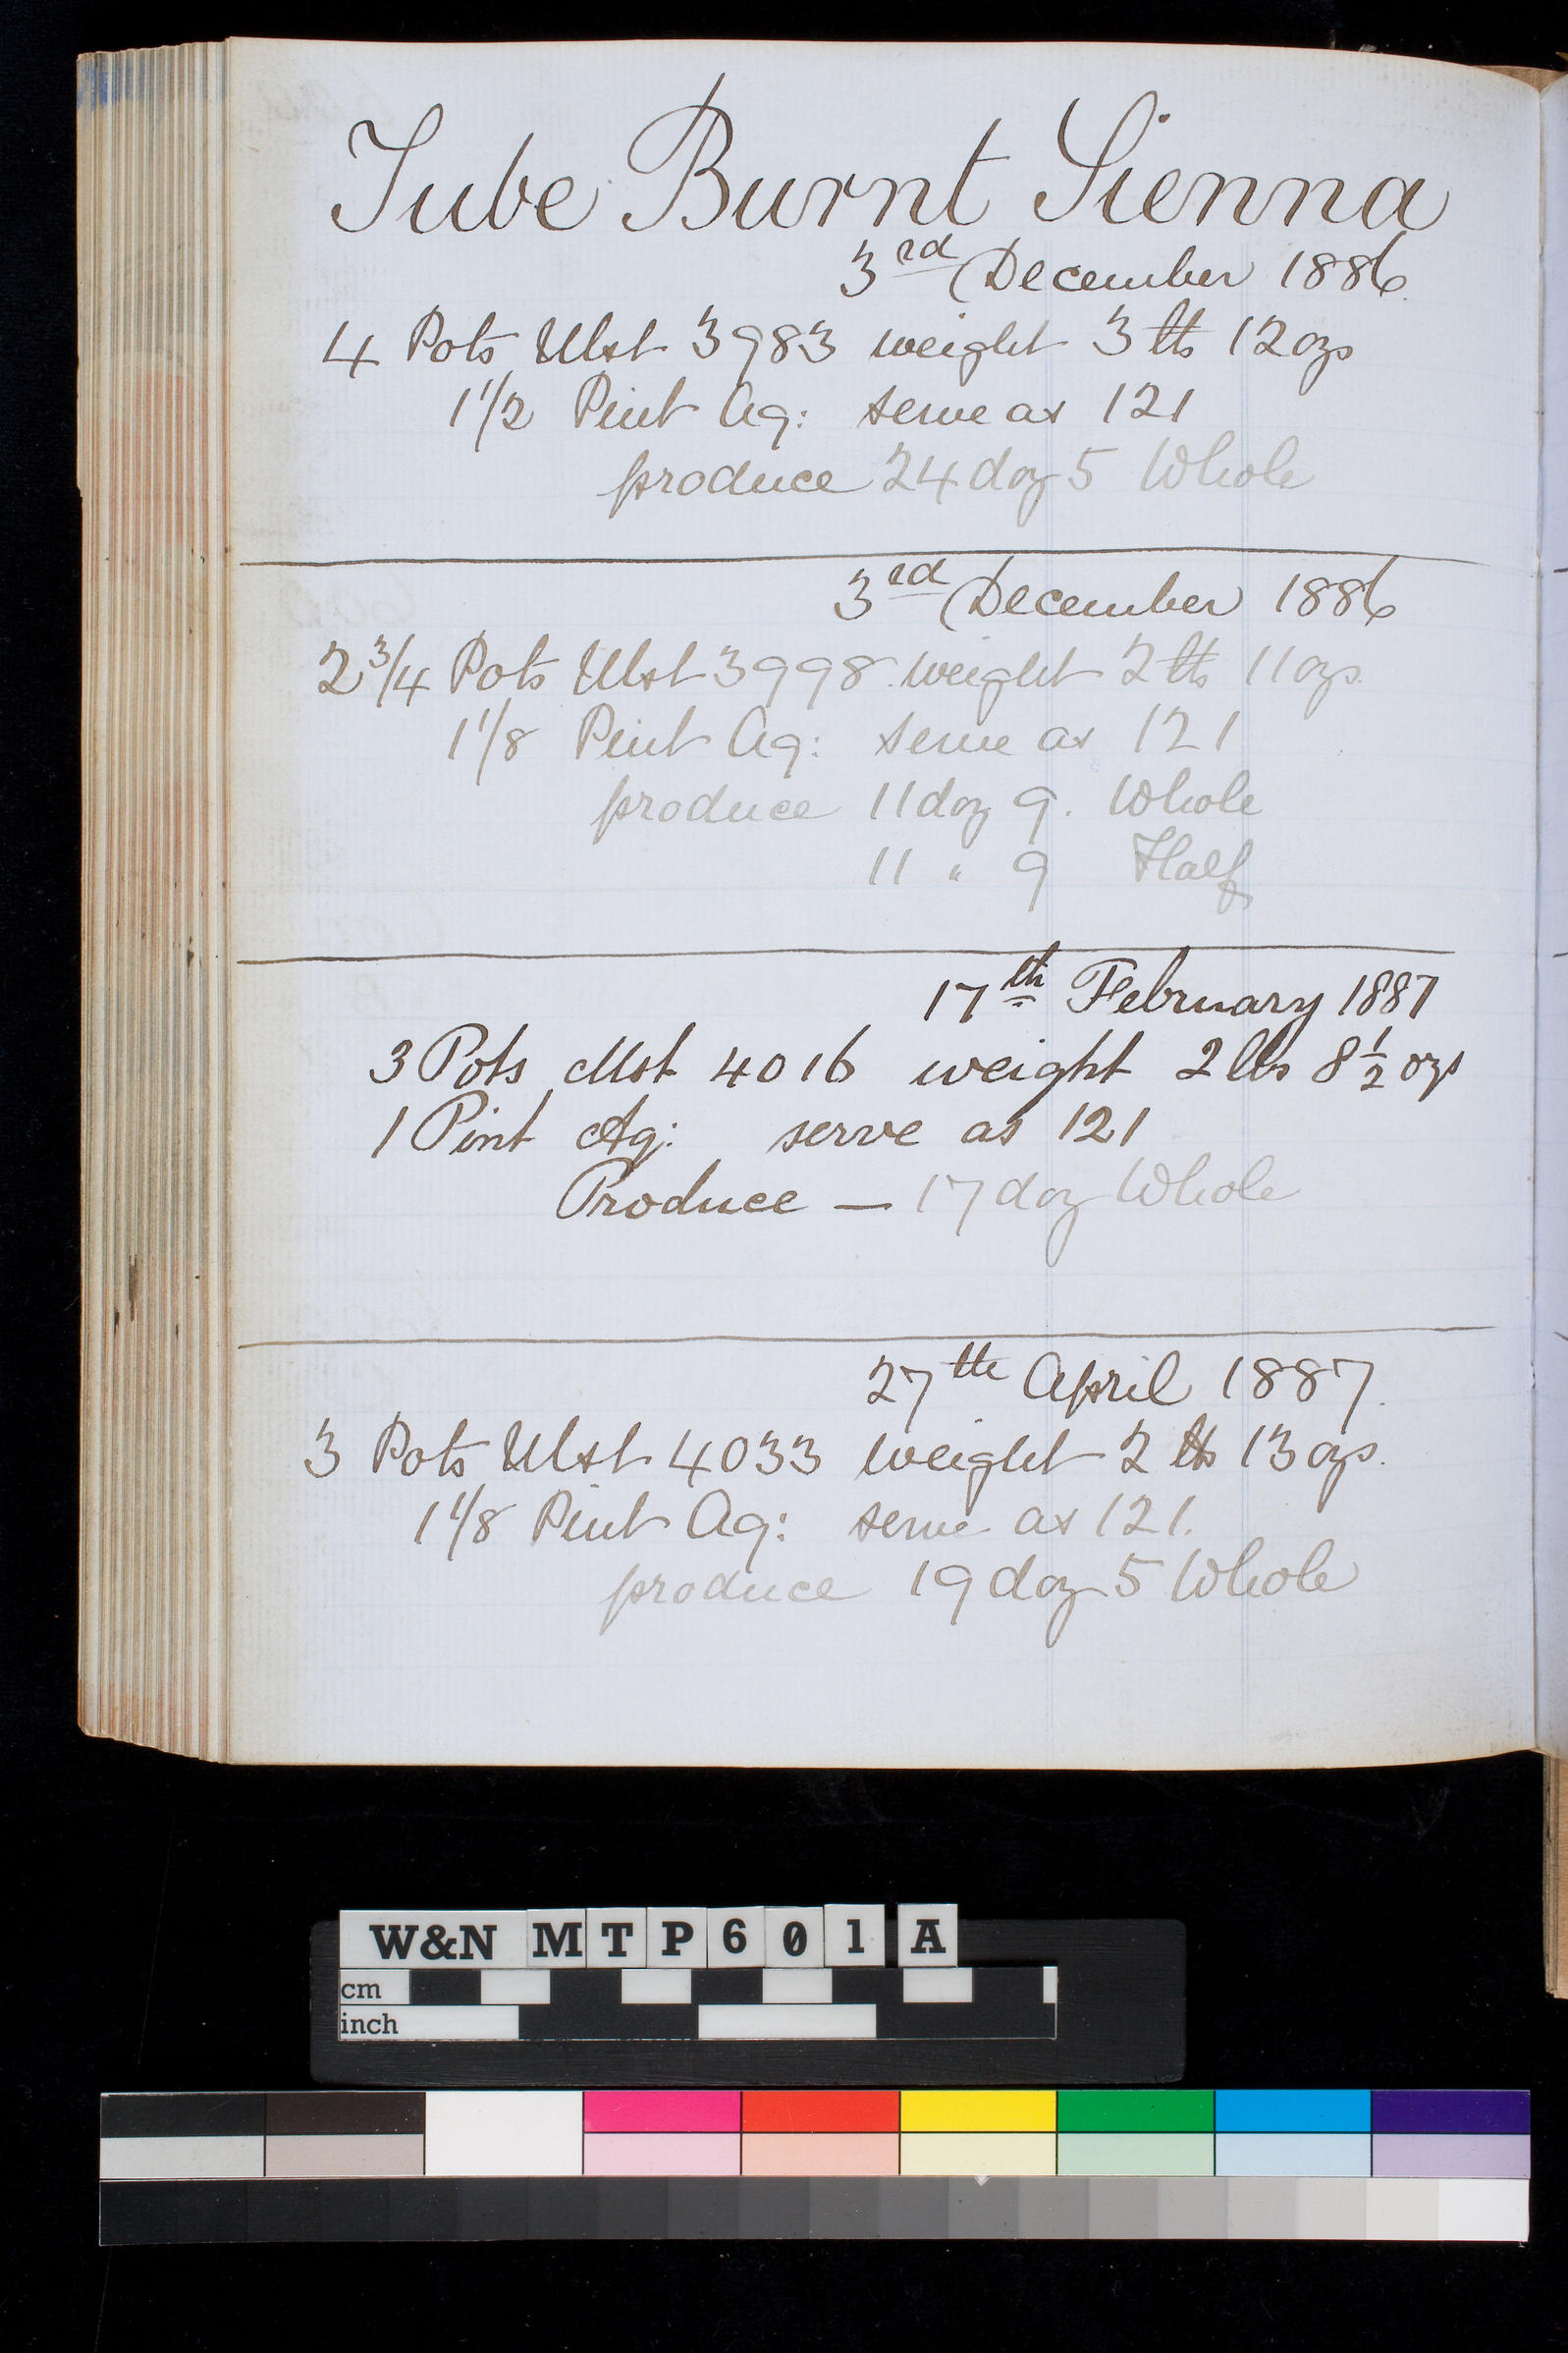 Tube Burnt Sienna
3rd December 1886.
4 Pots Mst 3983 weight 3 lb 12 ozs
1 1/2 Pint Aq: serve as 121
produce 24 doz 5 Whole
3rd December 1886
2 3/4 Pots Mst 3998 weight 2 lb 11 ozs.
1 1/8 Pint Aq: serve as 121
produce 11 doz 9. Whole
11 " 9 Half
17th February 1887
3 Pots Mst 4016 weight 2 lbs 8 1/2 ozs
1 Pint Aq: serve as 121
Produce — 17 doz Whole
27th April 1887.
3 Pots Mst 4033 weight 2 lb 13 ozs.
1 1/8 Pint Aq: serve as 121.
produce 19 doz 5 Whole
W&N MTP601 A
cm
inch